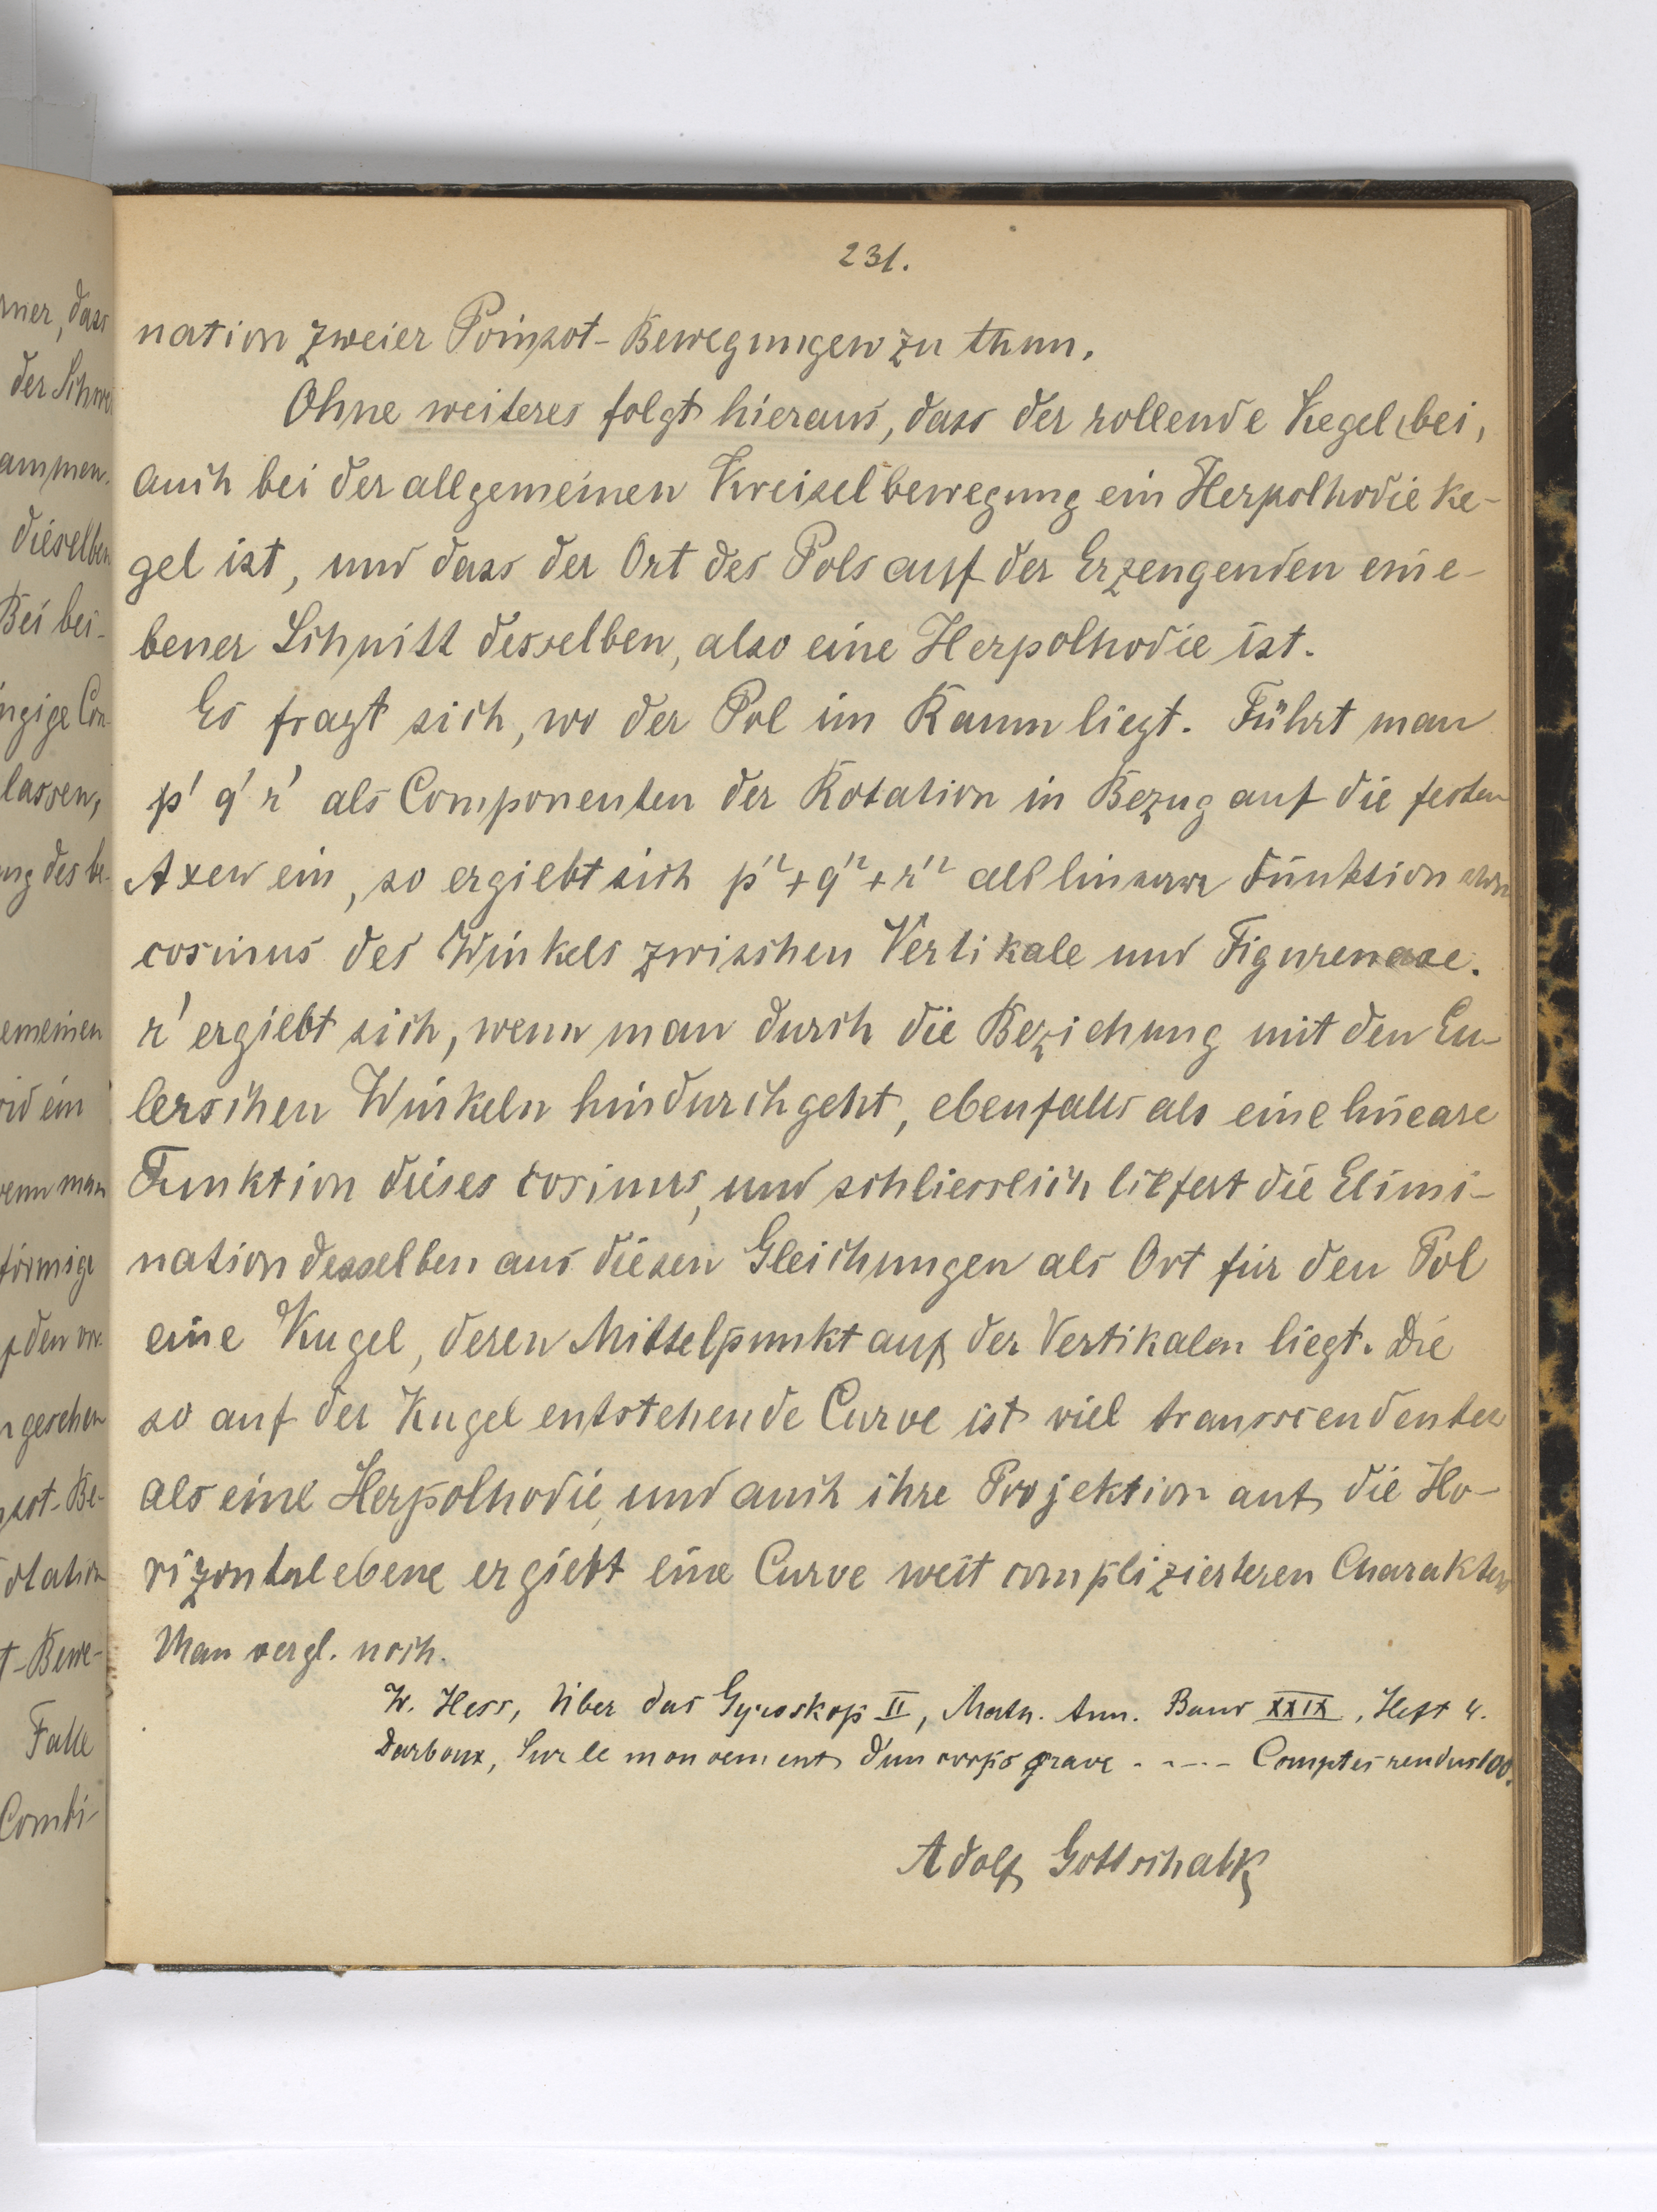 231.
nation zweier Poinsot-Bewegungen zu thun.
Ohne weiteres folgt hieraus, dass der rollende Kegel bei,
auch bei der allgemeinen Kreiselbewegung ein Herpolhodieke-
gel ist, und dass der Ort des Pols auf der Erzeugenden ein e-
bener Schnitt desselben, also eine Herpolhodie ist.
Es fragt sich, wo der Pol im Raum liegt. Führt man
p' q' r' als Componenten der Rotation in Bezug auf die festen
Axen ein, so ergiebt sich p'² + q'² + r'² als lineare Funktion vom
cosinus des Winkels zwischen Vertikale und Figurenaxe.
r' ergiebt sich, wenn man durch die Beziehung mit den Eu-
lerschen Winkeln hindurchgeht, ebenfalls als eine lineare
Funktion dieses cosinus, und schliesslich liefert die Elimi-
nation desselben aus diesen Gleichungen als Ort für den Pol
eine Kugel, deren Mittelpunkt auf der Vertikalen liegt. Die
so auf der Kugel entstehende Curve ist viel transscendenter
als eine Herpolhodie, und auch ihre Projektion auf die Ho-
rizontalebene ergiebt eine Curve weit complizierteren Charakters
Man vergl. noch.
W. Hess, Über das Gyroskop II, Math. Ann. Band XXIX, Heft 4.
Darboux, Sur le mouvement d'un corps grave ..--- Comptes rendus 100.
Adolf Gottschalk
mer, dass
der Schwe
ammen.
dieselben
Bei bei-
ngige Con-
lassen,
ung des be-
emeinen
rid ein
wenn man
förmige
f den vor-
n gesehen
nsot-Be-
otation
t-Bewe-
Falle
Combi-